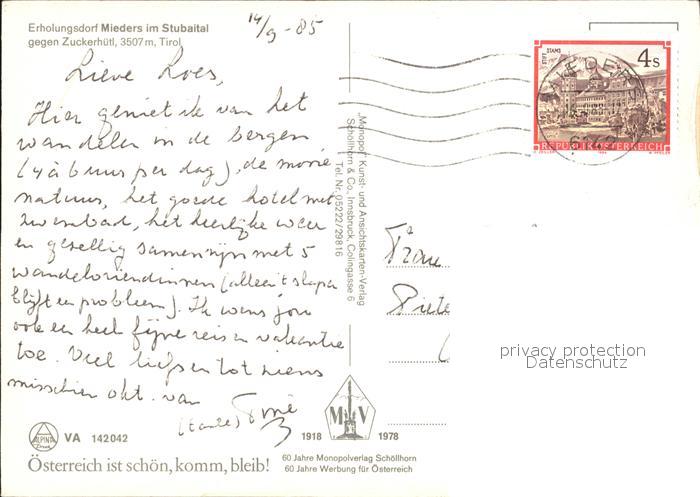 Erholungsdorf Mieders im Stubaital
gegen Zuckerhütl, 3507m, Tirol
14/9-85
Lieve Loes,
Hier geniet ik van het
wandelen in de bergen
(4 à 6 uur per dag), de mooie
natuur, het goede hotel met
zwembad, het heerlijke weer
en gezellig samenzijn met 5
wandelvriendinnen (alleen 't slapen
blijft een probleem). Ik wens jou
ook een heel fijne reis en vakantie
toe. Veel liefs en tot ziens
misschien okt. van
(tante)
ALPINA
Druck
VA 142042
Österreich ist schön, komm, bleib!
"Monopol" Kunst- und Ansichtskarten-Verlag
Schöllhorn & Co., Innsbruck, Colingasse 6
Tel. Nr. 05222/29816
STIFT STAMS
4 S
REPUBLIK ÖSTERREICH
MIEDERS
Frau
privacy protection
Datenschutz
M V
1918 1978
60 Jahre Monopolverlag Schöllhorn
60 Jahre Werbung für Österreich